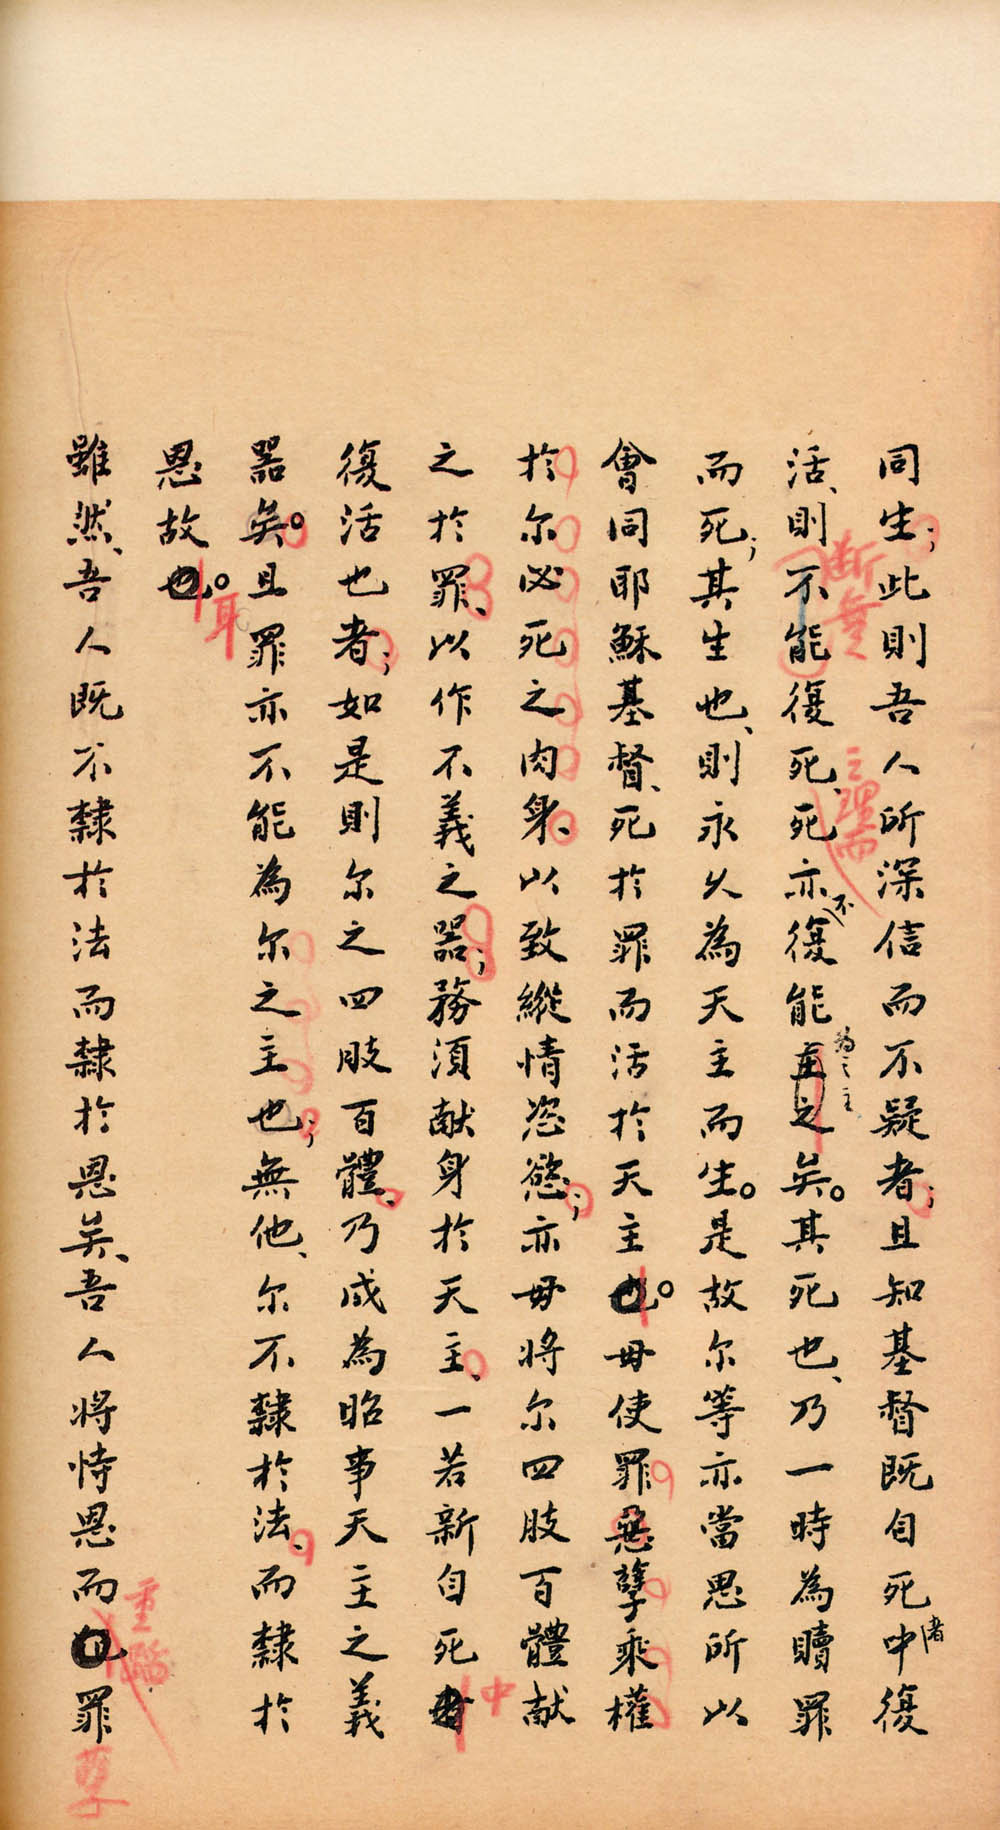 同生；此則吾人所深信而不疑者；且知基督既自死者中復
活、則不能復死、死亦不復能主之矣。其死也、乃一時為贖罪
而死；其生也、則永久為天主而生。是故尔等亦當思所以
會同耶穌基督、死於罪而活於天主也。毋使罪惡孽乘權
於尔必死之肉身、以致縱情恣慾；亦毋將尔四肢百體献
之於罪、以作不義之器；務須献身於天主、一若新自死中
復活也者；如是則尔之四肢百體、乃成為昭事天主之義
器矣。且罪亦不能為尔之主也；無他、尔不隸於法、而隸於
恩故也。
雖然、吾人既不隸於法而隸於恩矣、吾人將恃恩而犯罪
断無
之理而
為之主
耳
重蹈
孽